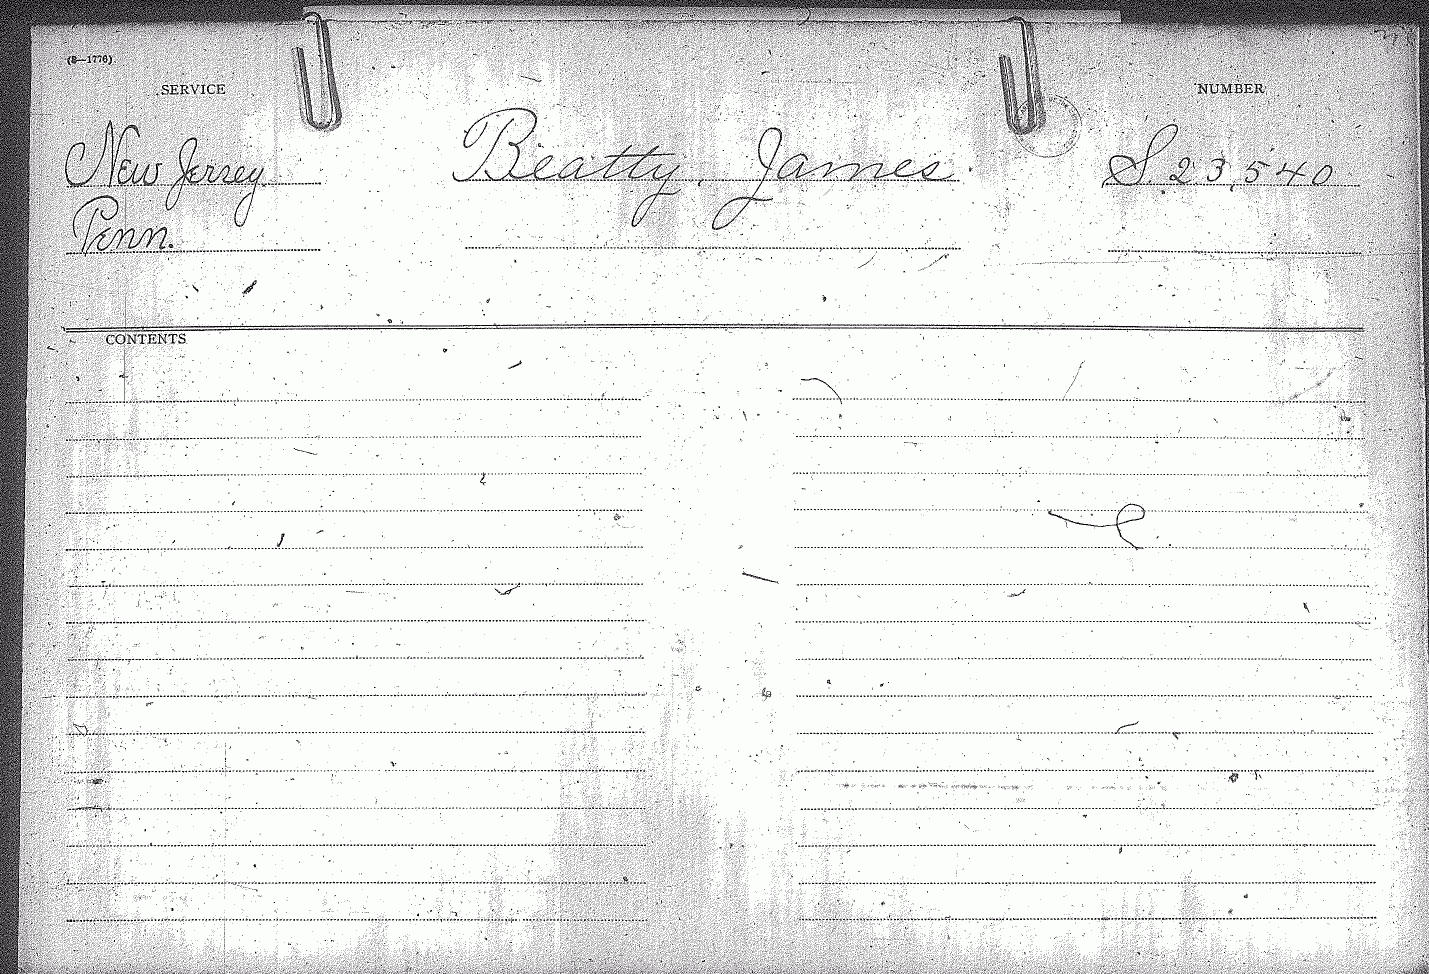 (8—1776)
SERVICE
NUMBER
New Jersey
Beatty, James
S. 23,540
Penn.
CONTENTS